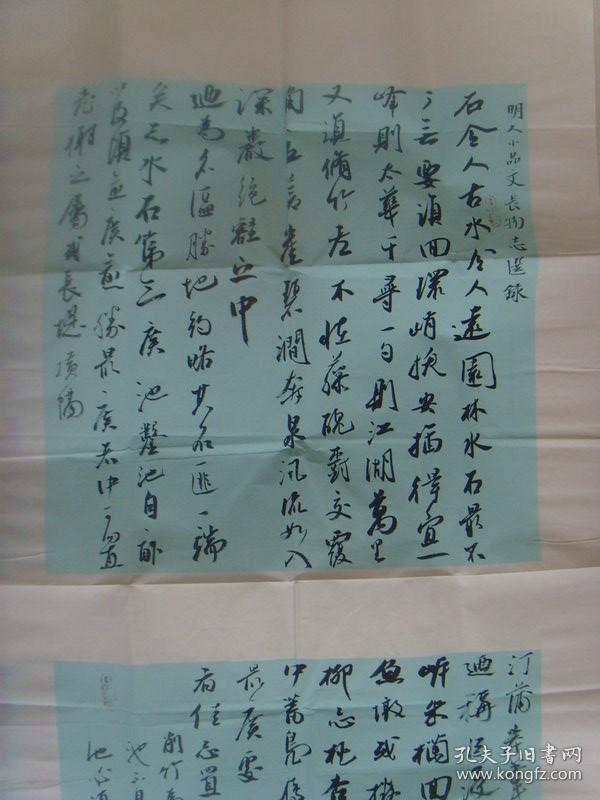 明人小品文長物志選錄
石令人古水令人遠園林水石最不
可無要須回環峭拔安插得宜一
峰則太華千尋一勺則江湖萬里
又須脩竹老木怪藤醜樹交覆
角立蒼崖碧澗奔泉汛流如入
深巖絕壑之中
迺為名區勝地約略其名匪一端
矣志水石第三廣池鑿池自畝
以及頃愈廣愈勝最廣者中可置
臺榭之屬或長堤橫隔
汀蒲岸葦
迺稱巨浸
岸朱欄回
魚墩或擬
柳忌桃杏
中畜鳧雁
最廣處
者佳忌置
削竹為
池不見
孔夫子旧书网
www.kongfz.com